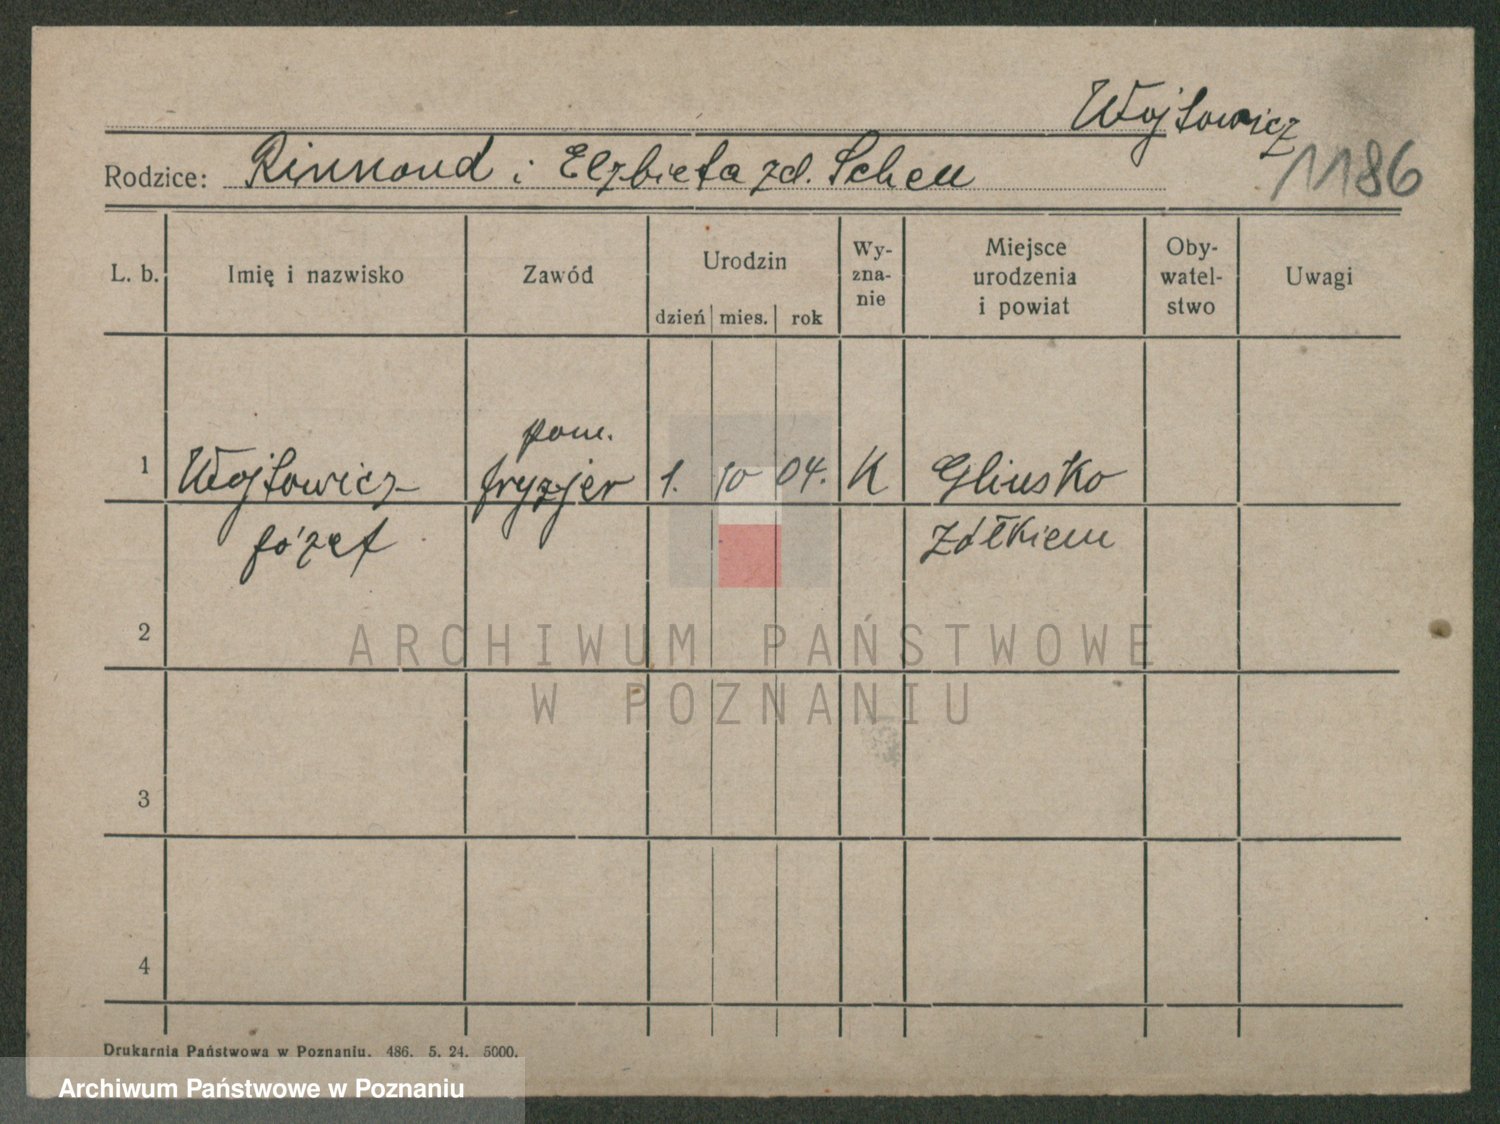 Wojtowicz
Rodzice: i Elzbieta zd. Scheu
1186
L. b. Imię i nazwisko Zawód Urodzin dzień mies. rok Wy-zna-nie Miejsce urodzenia i powiat Oby-watel-stwo Uwagi
pom.
1 Wojtowicz fryzjer 1. 10 04. K Glinsko
Józef Żółkiew
2
ARCHIWUM PAŃSTWOWE
W POZNANIU
3
4
Drukarnia Państwowa w Poznaniu. 486. 5. 24. 5000.
Archiwum Państwowe w Poznaniu